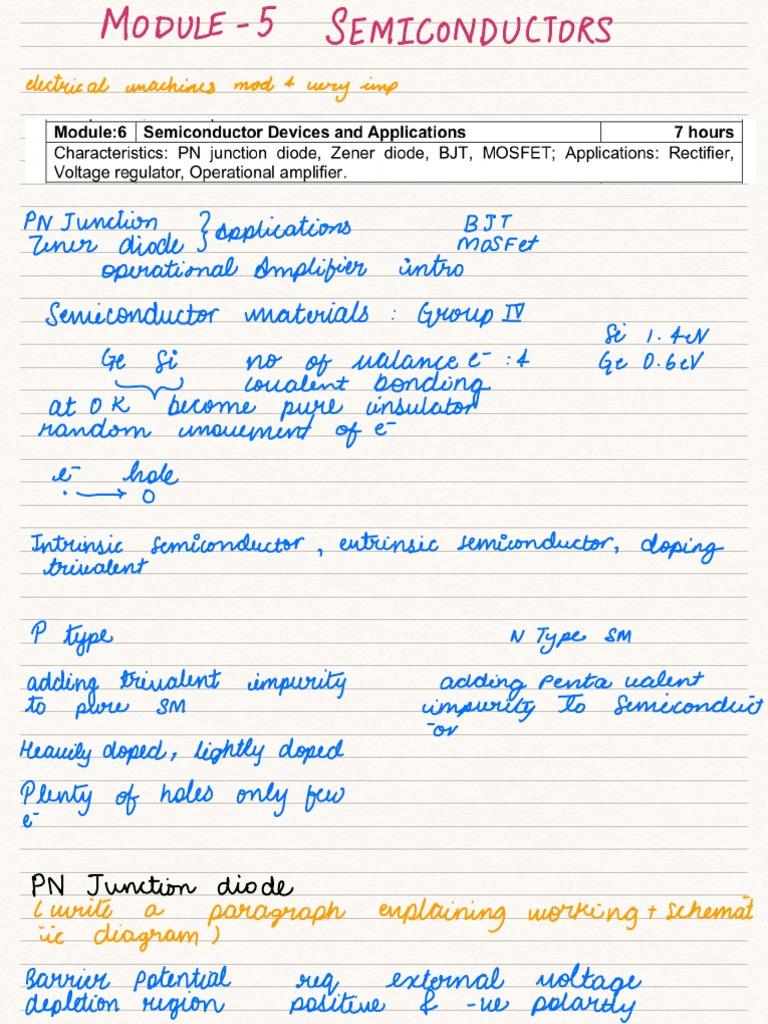 MODULE - 5 SEMICONDUCTORS
electrical machines mod 4 very imp
Module:6 Semiconductor Devices and Applications 7 hours
Characteristics: PN junction diode, Zener diode, BJT, MOSFET; Applications: Rectifier,
Voltage regulator, Operational amplifier.
PN Junction } Applications BJT
Zener diode MOSFet
operational Amplifier intro
Semiconductor materials : Group IV
Si 1.4eV
Ge Si no of valance e⁻ : 4 Ge 0.6eV
covalent bonding
at 0 K become pure insulator
random movement of e⁻
e⁻ hole
. → O
Intrinsic semiconductor, extrinsic semiconductor, doping
trivalent
P type N Type SM
adding trivalent impurity adding Penta valent
to pure SM impurity To Semiconduct
-or
Heavily doped, lightly doped
Plenty of holes only few
e⁻
PN Junction diode
(write a paragraph explaining working + schemat
ic diagram)
Barrier Potential req external voltage
depletion region positive & -ve polarity